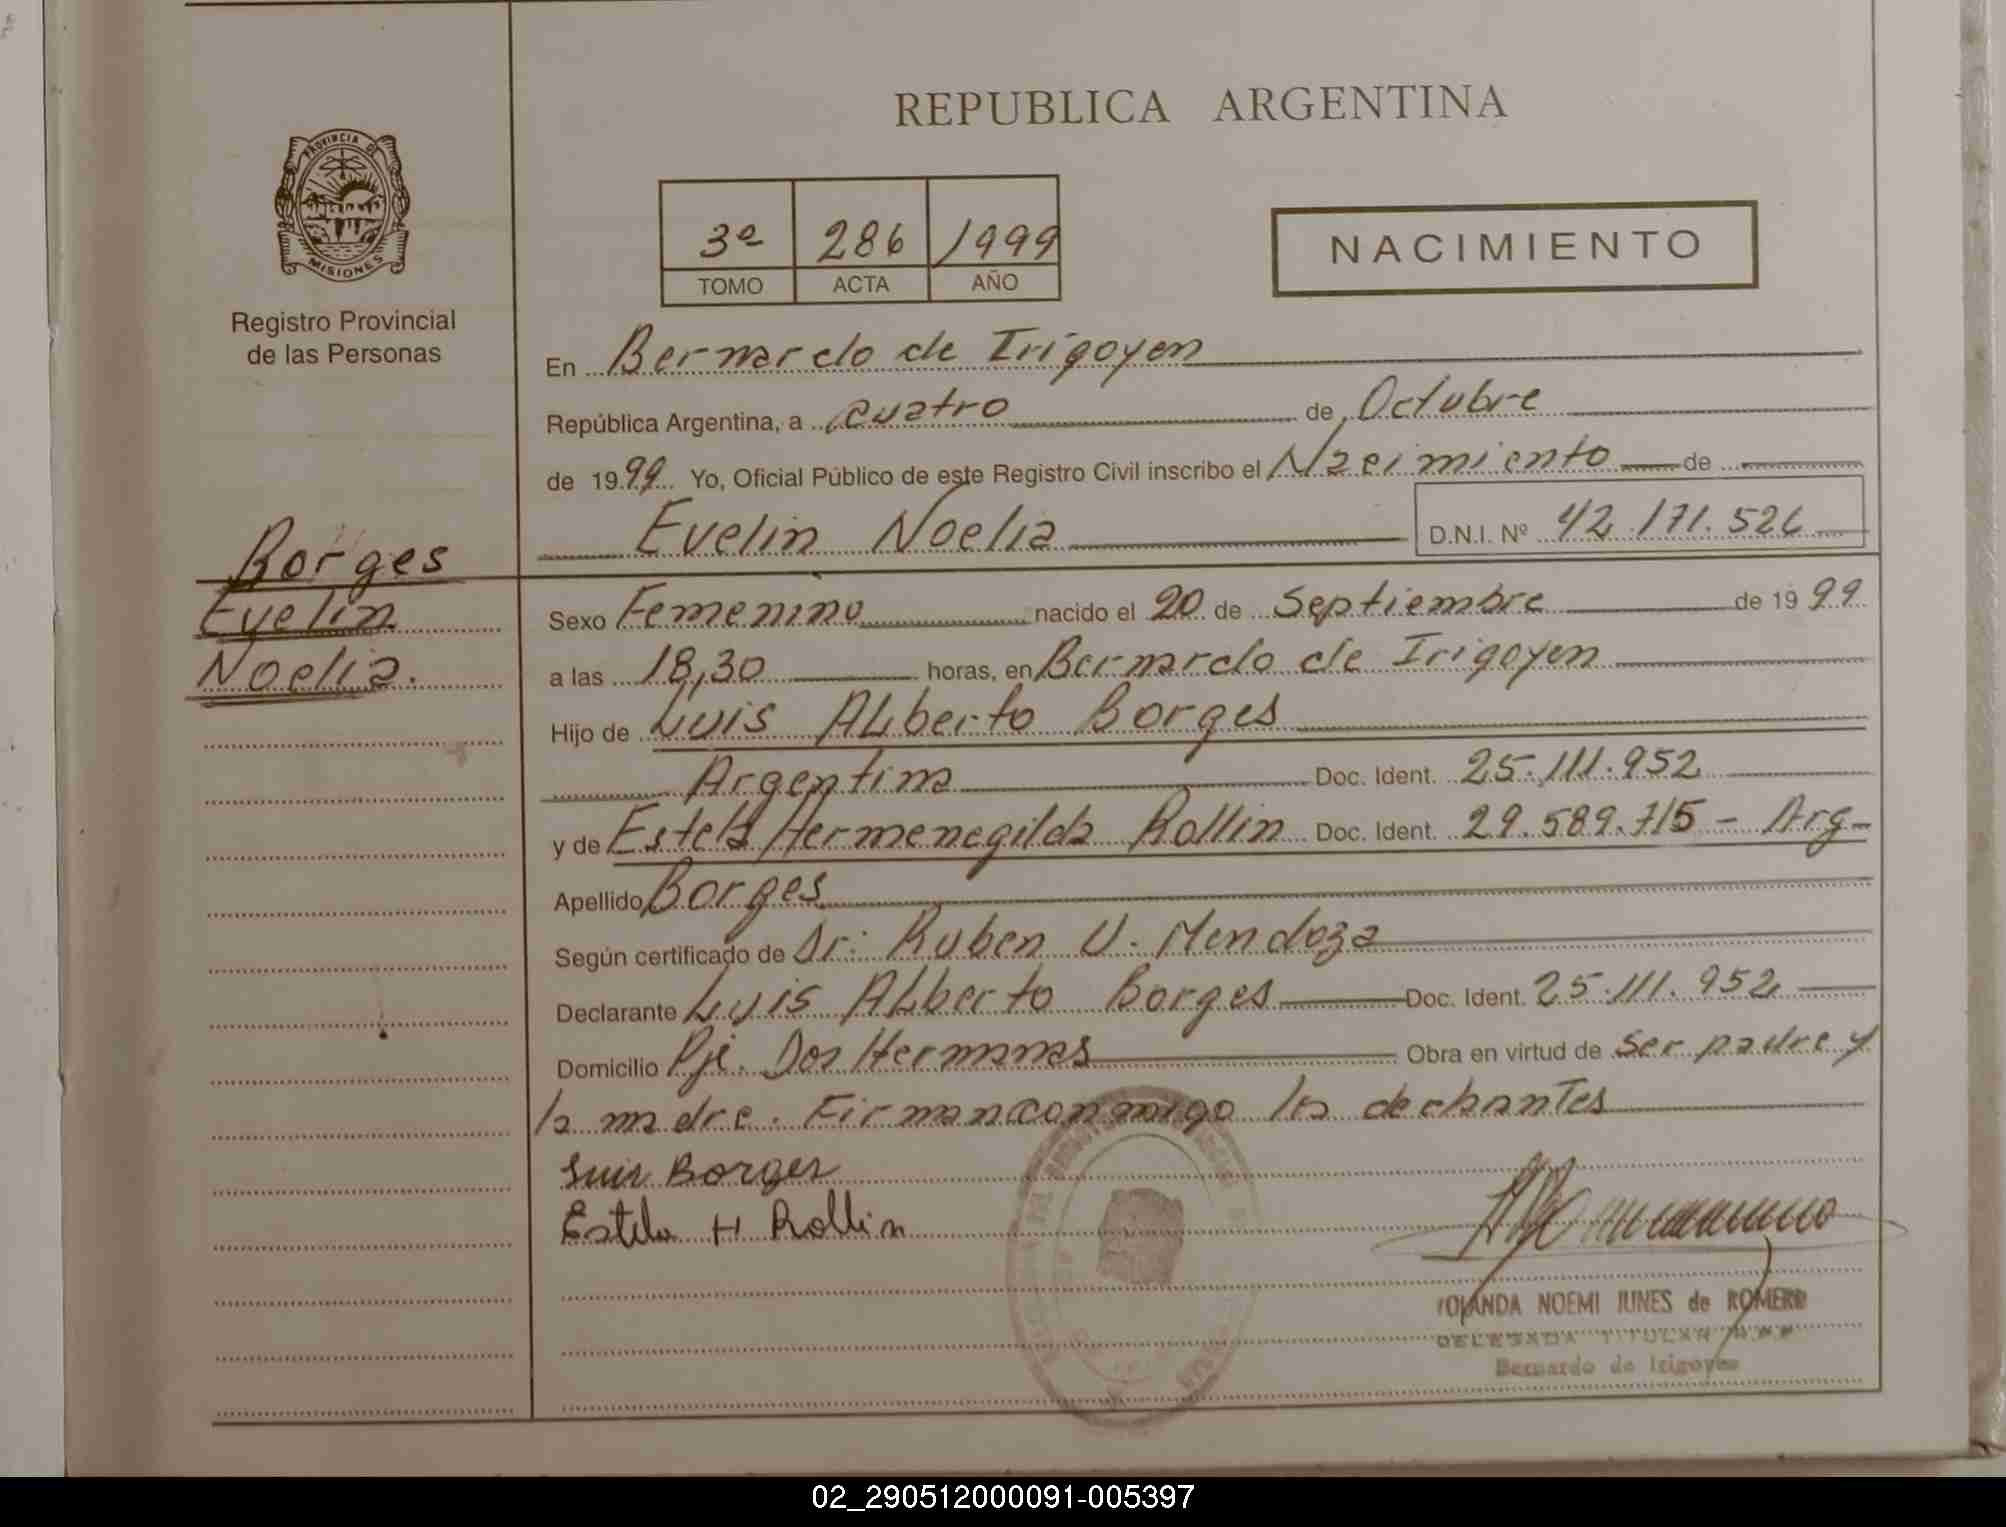 PROVINCIA DE
MISIONES
Registro Provincial
de las Personas
Borges
Evelin
Noelia.
REPUBLICA ARGENTINA
3º 286 1999
TOMO ACTA AÑO
NACIMIENTO
En Bernardo de Irigoyen
República Argentina, a cuatro de Octubre
de 1999 Yo, Oficial Público de este Registro Civil inscribo el Nacimiento de
Evelin Noelia D.N.I. Nº 42.171.526
Sexo Femenino nacido el 20 de Septiembre de 1999
a las 18,30 horas, en Bernardo de Irigoyen
Hijo de Luis Alberto Borges
Argentina Doc. Ident. 25.111.952
y de Estela Hermenegilda Rollin Doc. Ident. 29.589.715 - Arg-
Apellido Borges
Según certificado de Dr: Ruben U. Mendoza
Declarante Luis Alberto Borges Doc. Ident. 25.111.952
Domicilio Pje. Dos Hermanas Obra en virtud de ser padre y
la madre. Firman conmigo los
Luis Borges
Estela H Rollin
YOLANDA NOEMI IUNES de ROMERO
DELEGADA TITULAR
Bernardo de Irigoyen
02_290512000091-005397